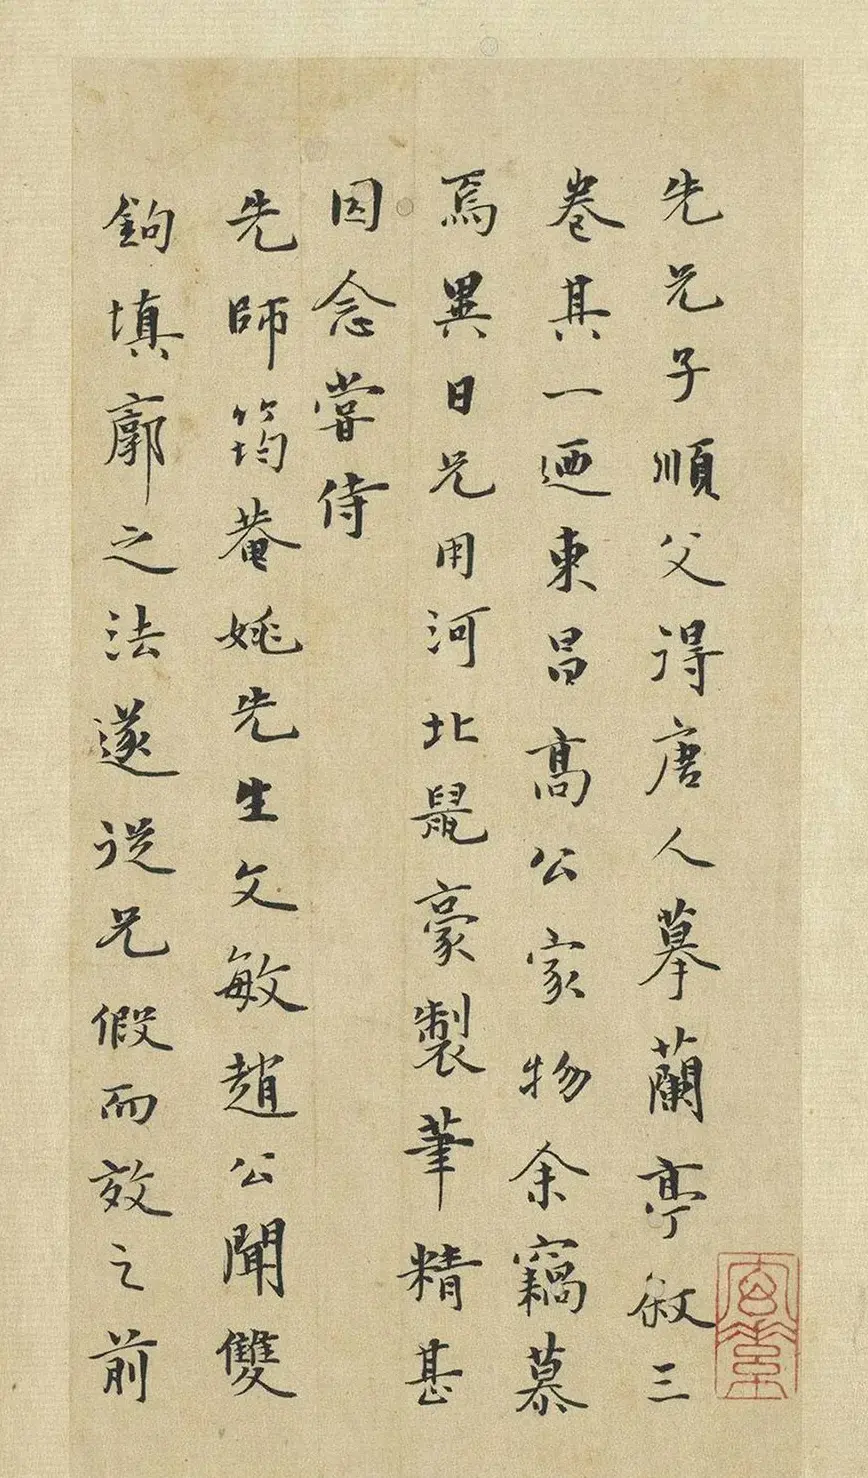 先兄子順父得唐人摹蘭亭敘三
卷其一迺東昌高公家物余竊慕
焉異日兄用河北鼠豪製筆精甚
因念嘗侍
先師筠菴姚先生文敏趙公聞雙
鉤填廓之法遂從兄假而效之前